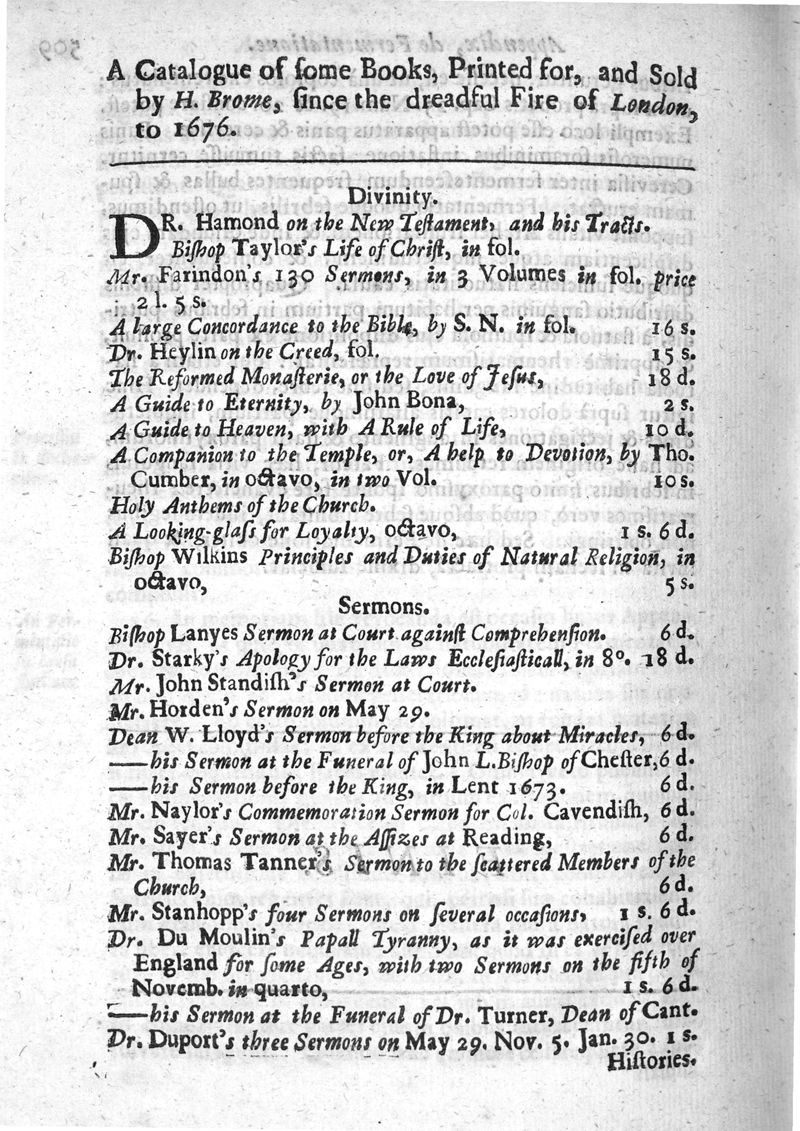 A Catalogue of ſome Books, Printed for, and Sold
by H. Brome, ſince the dreadful Fire of London,
to 1676.
Divinity.
DR. Hamond on the New Teſtament, and his Tracts.
Biſhop Taylor's Life of Chriſt, in fol.
Mr. Farindon's 130 Sermons, in 3 Volumes in fol. price
2 l. 5 s.
A large Concordance to the Bible, by S. N. in fol. 16 s.
Dr. Heylin on the Creed, fol. 15 s.
The Reformed Monaſterie, or the Love of Jeſus, 18 d.
A Guide to Eternity, by John Bona, 2 s.
A Guide to Heaven, with A Rule of Life, 10 d.
A Companion to the Temple, or, A help to Devotion, by Tho.
Cumber, in octavo, in two Vol. 10 s.
Holy Anthems of the Church.
A Looking-glaſs for Loyalty, octavo, 1 s. 6 d.
Biſhop Wilkins Principles and Duties of Natural Religion, in
octavo, 5 s.
Sermons.
Biſhop Lanyes Sermon at Court againſt Comprehenſion. 6 d.
Dr. Starky's Apology for the Laws Eccleſiaſticall, in 8o. 18 d.
Mr. John Standiſh's Sermon at Court.
Mr. Horden's Sermon on May 29.
Dean W. Lloyd's Sermon before the King about Miracles, 6 d.
—his Sermon at the Funeral of John L. Biſhop of Cheſter, 6 d.
—his Sermon before the King, in Lent 1673. 6 d.
Mr. Naylor's Commemoration Sermon for Col. Cavendiſh, 6 d.
Mr. Sayer's Sermon at the Aſſizes at Reading, 6 d.
Mr. Thomas Tanner's Sermon to the ſcattered Members of the
Church, 6 d.
Mr. Stanhopp's four Sermons on ſeveral occaſions, 1 s. 6 d.
Dr. Du Moulin's Papall Tyranny, as it was exerciſed over
England for ſome Ages, with two Sermons on the fifth of
Novemb. in quarto, 1 s. 6 d.
—his Sermon at the Funeral of Dr. Turner, Dean of Cant.
Dr. Duport's three Sermons on May 29. Nov. 5. Jan. 30. 1 s.
Hiſtories.